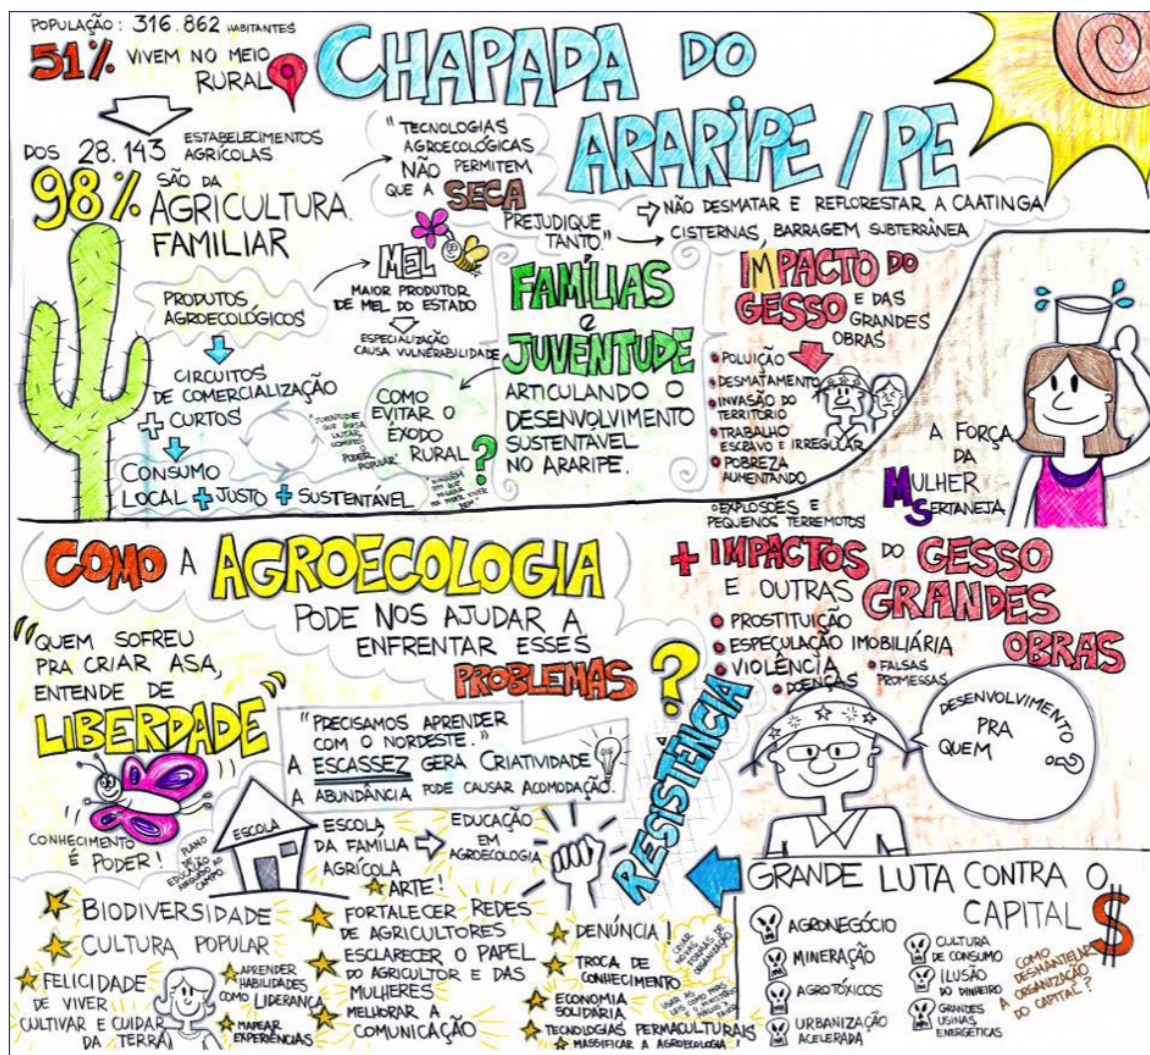 POPULAÇÃO: 316.862 HABITANTES
51% VIVEM NO MEIO
RURAL
DOS 28.143 ESTABELECIMENTOS
AGRÍCOLAS
98% SÃO DA
AGRICULTURA
FAMILIAR
CHAPADA DO
ARARIPE / PE
"TECNOLOGIAS
AGROECOLÓGICAS
NÃO PERMITEM
QUE A SECA
PREJUDIQUE
TANTO."
NÃO DESMATAR E REFLORESTAR A CAATINGA
CISTERNAS, BARRAGEM SUBTERRÂNEA
MEL
MAIOR PRODUTOR
DE MEL DO ESTADO
ESPECIALIZAÇÃO
CAUSA VULNERABILIDADE
PRODUTOS
AGROECOLÓGICOS
CIRCUITOS
DE COMERCIALIZAÇÃO
+ CURTOS
CONSUMO
LOCAL + JUSTO + SUSTENTÁVEL
COMO
EVITAR O
ÊXODO
RURAL?
PODER
POPULAR"
FAMÍLIAS
e
JUVENTUDE
ARTICULANDO O
DESENVOLVIMENTO
SUSTENTÁVEL
NO ARARIPE.
IMPACTO DO
GESSO E DAS
GRANDES
OBRAS
POLUIÇÃO
DESMATAMENTO
INVASÃO DO
TERRITÓRIO
TRABALHO
ESCRAVO E IRREGULAR
POBREZA
AUMENTANDO
EXPLOSÕES E
PEQUENOS TERREMOTOS
A FORÇA
DA
MULHER
SERTANEJA
COMO A AGROECOLOGIA
PODE NOS AJUDAR A
ENFRENTAR ESSES
PROBLEMAS?
"QUEM SOFREU
PRA CRIAR ASA,
ENTENDE DE
LIBERDADE"
CONHECIMENTO
É PODER!
"PRECISAMOS APRENDER
COM O NORDESTE."
A ESCASSEZ GERA CRIATIVIDADE
A ABUNDÂNCIA PODE CAUSAR ACOMODAÇÃO.
PLANO
DE
EDUCAÇÃO
ESCOLA
ESCOLA
DA FAMÍLIA
AGRÍCOLA
EDUCAÇÃO
EM
AGROECOLOGIA
RESISTENCIA
+ IMPACTOS DO GESSO
E OUTRAS GRANDES
OBRAS
PROSTITUIÇÃO
ESPECULAÇÃO IMOBILIÁRIA
VIOLÊNCIA
DOENÇAS
FALSAS
PROMESSAS
DESENVOLVIMENTO
PRA
QUEM
?
BIODIVERSIDADE
CULTURA POPULAR
FELICIDADE
DE VIVER
CULTIVAR E CUIDAR
DA TERRA
APRENDER
HABILIDADES
COMO LIDERANÇA
MAPEAR
EXPERIÊNCIAS
ARTE!
FORTALECER REDES
DE AGRICULTORES
ESCLARECER O PAPEL
DO AGRICULTOR E DAS
MULHERES
MELHORAR A
COMUNICAÇÃO
DENÚNCIA!
TROCA DE
CONHECIMENTO
ECONOMIA
SOLIDÁRIA
TECNOLOGIAS PERMACULTURAIS
MASSIFICAR A AGROECOLOGIA!
CRIAR
NOVAS
FORMAS DE
ORGANIZAÇÃO
GRANDE LUTA CONTRA O
CAPITAL $
AGRONEGÓCIO
MINERAÇÃO
AGROTÓXICOS
URBANIZAÇÃO
ACELERADA
CULTURA
DE CONSUMO
ILUSÃO
DO DINHEIRO
GRANDES
USINAS
ENERGÉTICAS
COMO
DESMANTELAR
A ORGANIZAÇÃO
DO CAPITAL?